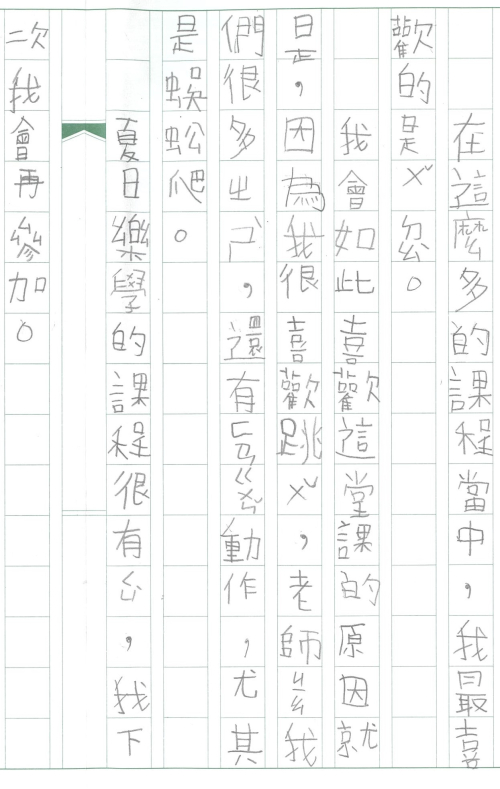 在這麼多的課程當中，我最喜
歡的是ㄨˇ。
我會如此喜歡這堂課的原因就
是，因為我很喜歡跳ㄨˇ，老師ㄐㄧㄠ我
們很多ㄓ，還有ㄈㄢ動作，尤其
是蜈蚣爬。
夏日樂學的課程很有，我下
二次我會再參加。